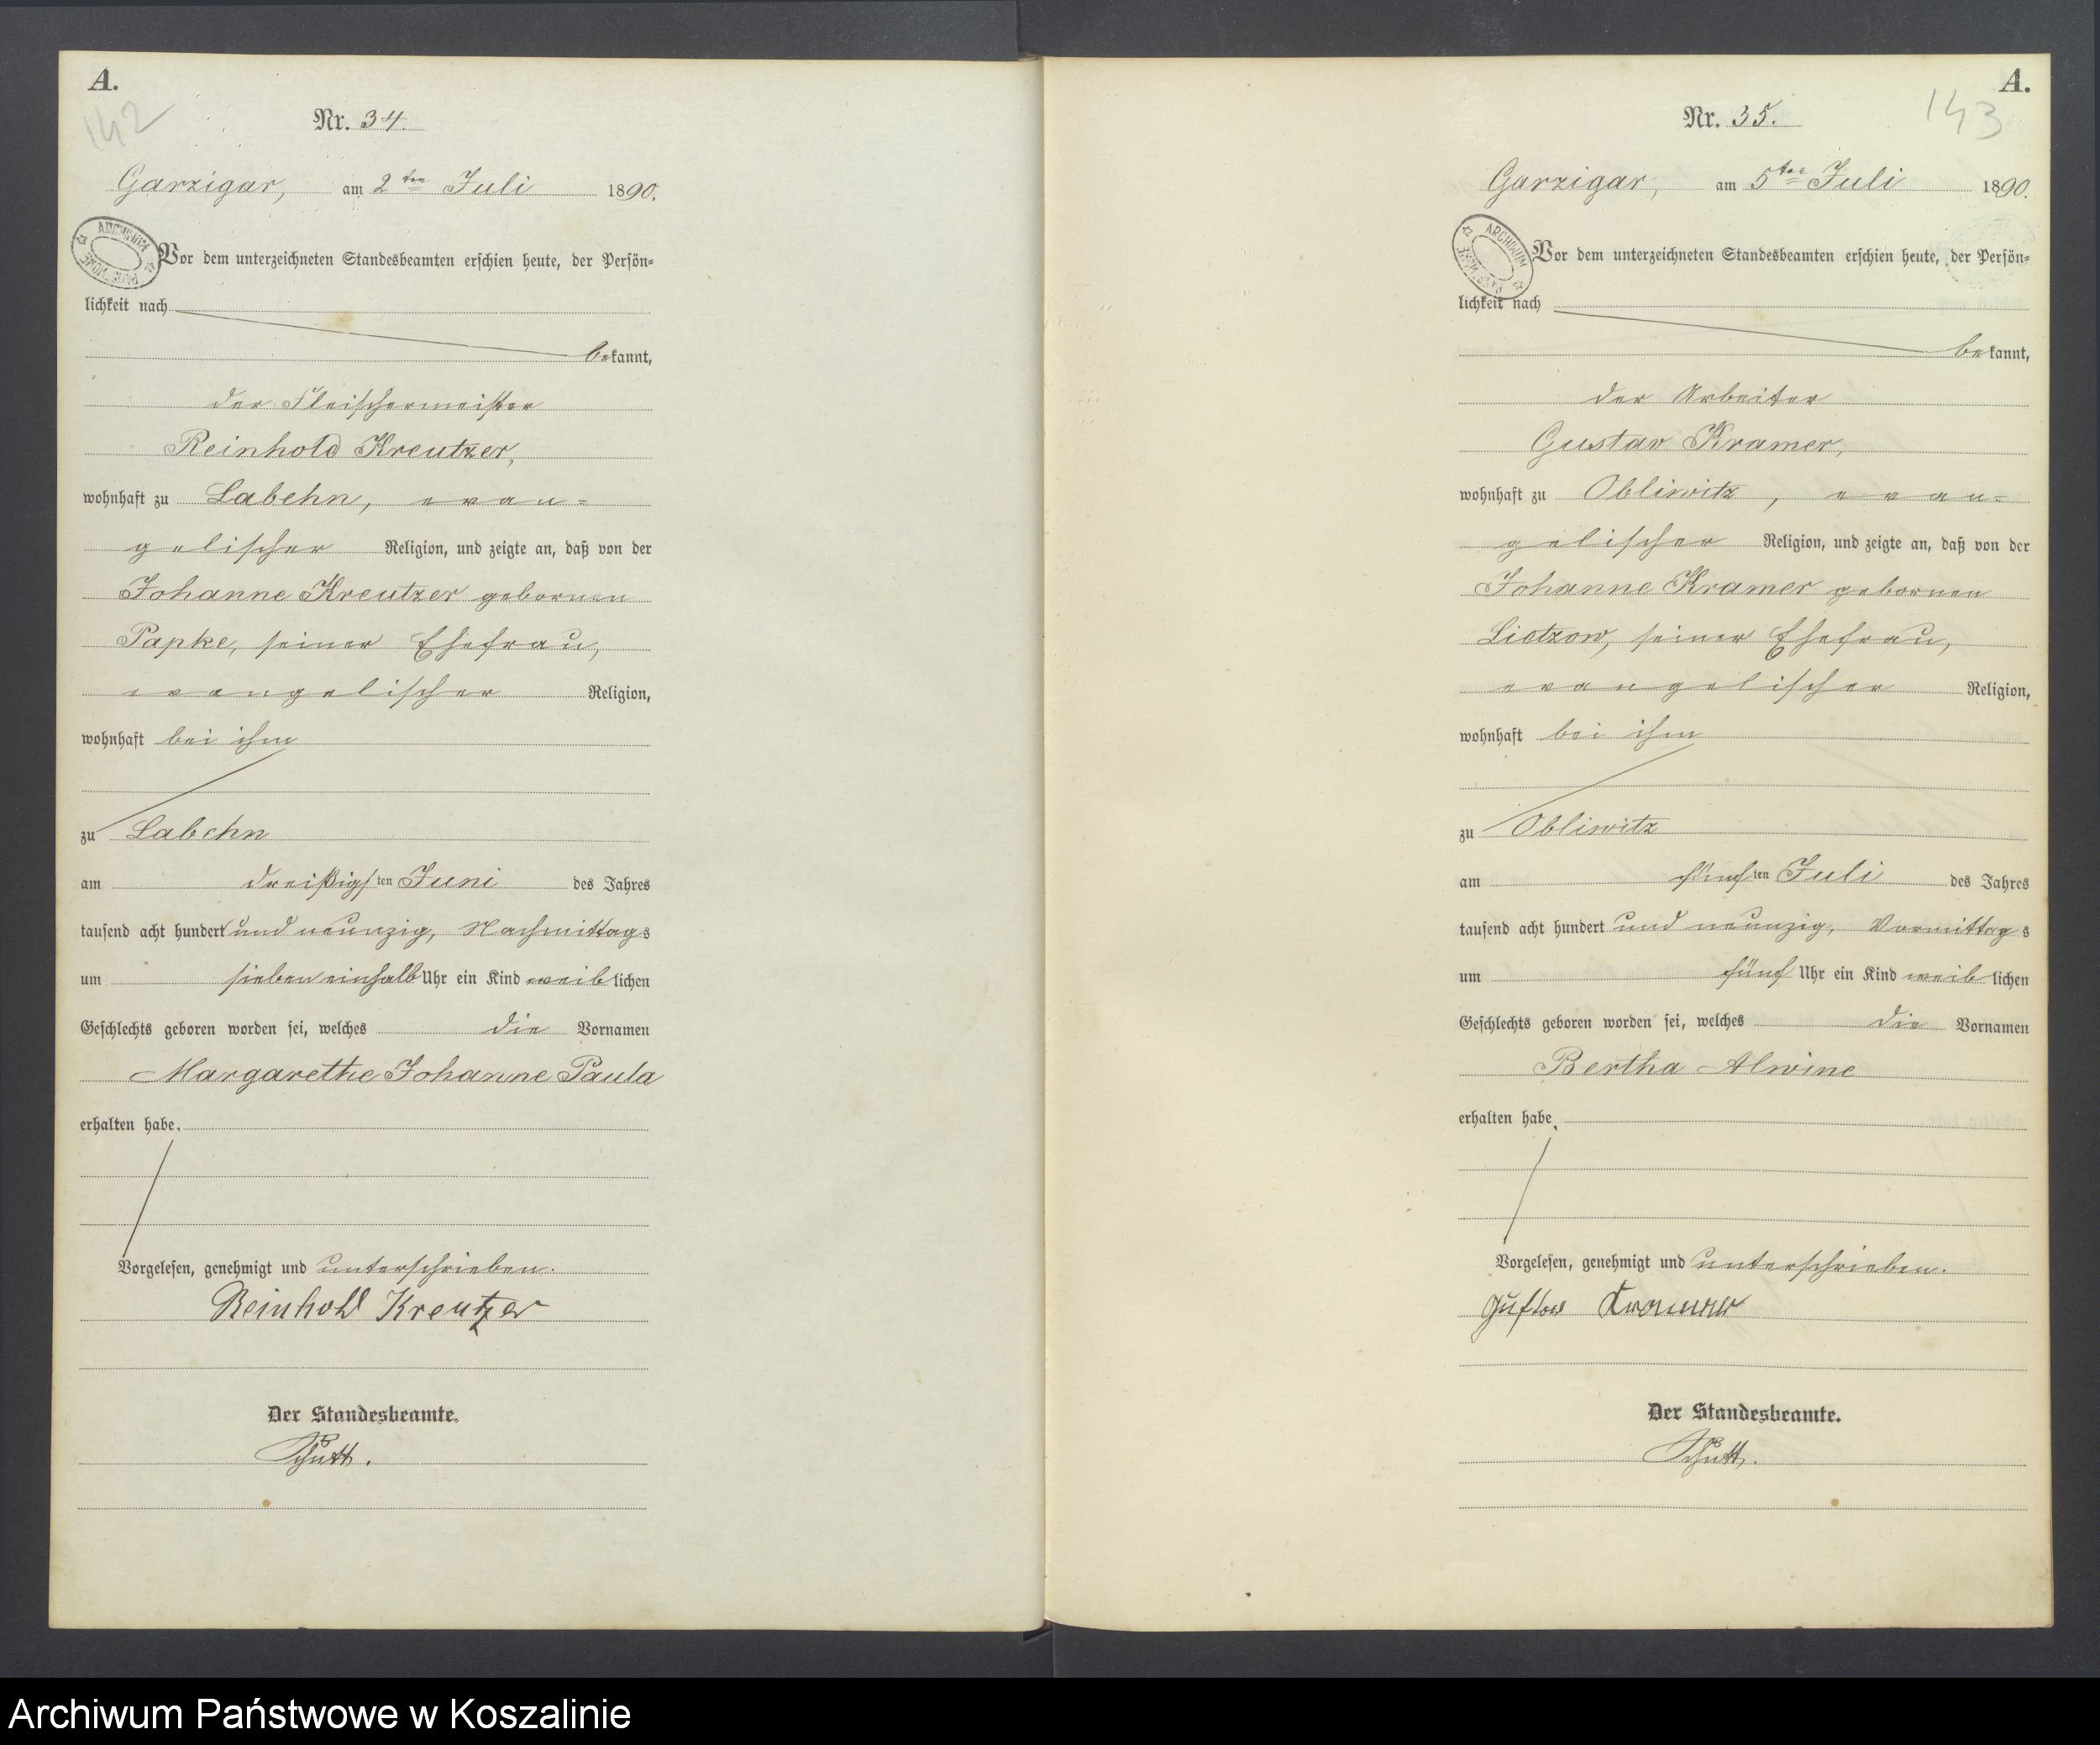 A.
142
Nr. 34.
Garzigar, am 2ten Juli 1890.
ARCHIWUM PAŃSTWOWE
Vor dem unterzeichneten Standesbeamten erschien heute, der Persön=
lichkeit nach
bekannt,
der Fleischermeister
Reinhold Kreutzer,
wohnhaft zu Labehn, evan=
gelischer Religion, und zeigte an, daß von der
Johanne Kreutzer gebornen
Papke, seiner Ehefrau,
evangelischer Religion,
wohnhaft bei ihm
zu Labehn
am dreißigsten Juni des Jahres
tausend acht hundert und neunzig, Nachmittags
um sieben einhalb Uhr ein Kind weiblichen
Geschlechts geboren worden sei, welches die Vornamen
Margarethe Johanne Paula
erhalten habe.
Vorgelesen, genehmigt und unterschrieben.
Reinhold Kreutzer
Der Standesbeamte.
Schutt.
A.
143
Nr. 35.
Garzigar, am 5ten Juli 1890.
ARCHIWUM PAŃSTWOWE
Vor dem unterzeichneten Standesbeamten erschien heute, der Persön=
lichkeit nach
bekannt,
der Arbeiter
Gustav Kramer,
wohnhaft zu Obliwitz, evan=
gelischer Religion, und zeigte an, daß von der
Johanne Kramer gebornen
Lietzow, seiner Ehefrau,
evangelischer Religion,
wohnhaft bei ihm
zu Obliwitz
am fünften Juli des Jahres
tausend acht hundert und neunzig, Vormittags
um fünf Uhr ein Kind weiblichen
Geschlechts geboren worden sei, welches die Vornamen
Bertha Alwine
erhalten habe.
Vorgelesen, genehmigt und unterschrieben.
Gustav Kramer
Der Standesbeamte.
Schutt.
Archiwum Państwowe w Koszalinie